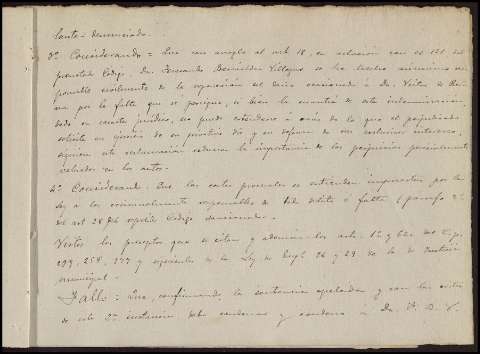 tante - denunciado.
3º Considerando = Que con arreglo al art 18, en relación con el 121 del
precitado Código, Dn. Fernando Bermúdez Villegas se ha hecho
ponsable civilmente de la reparación del daño ocasionado á Dn.
por la falta que se persigue, si bien la cuantía de esta indemnización,
dado su carácter jurídico, no puede extenderse á más de lo que el perjudicado
solicita en ejercicio de su derecho y en defensa de sus exclusivos intereses,
siquiera esta reclamación reduzca la importancia de los perjuicios pericialmente
valuados en los autos.
4º Considerando. Que las costas procesales se entienden impuestas por la
ley a los criminalmente responsables de todo delito ó falta (párrafo 2º
del art 28 del repetido Código
Vistos los preceptos que se citan y además los arts. 1º y 620 del C. p.
199, 258, 277 y siguientes de la Ley de Enjº 26 y 29 de la de Justicia
municipal.
Fallo: Que, confirmando la sentencia apelada y con las costas
de esta 2ª instancia debo condenar y condeno á Dn. F. B. V.